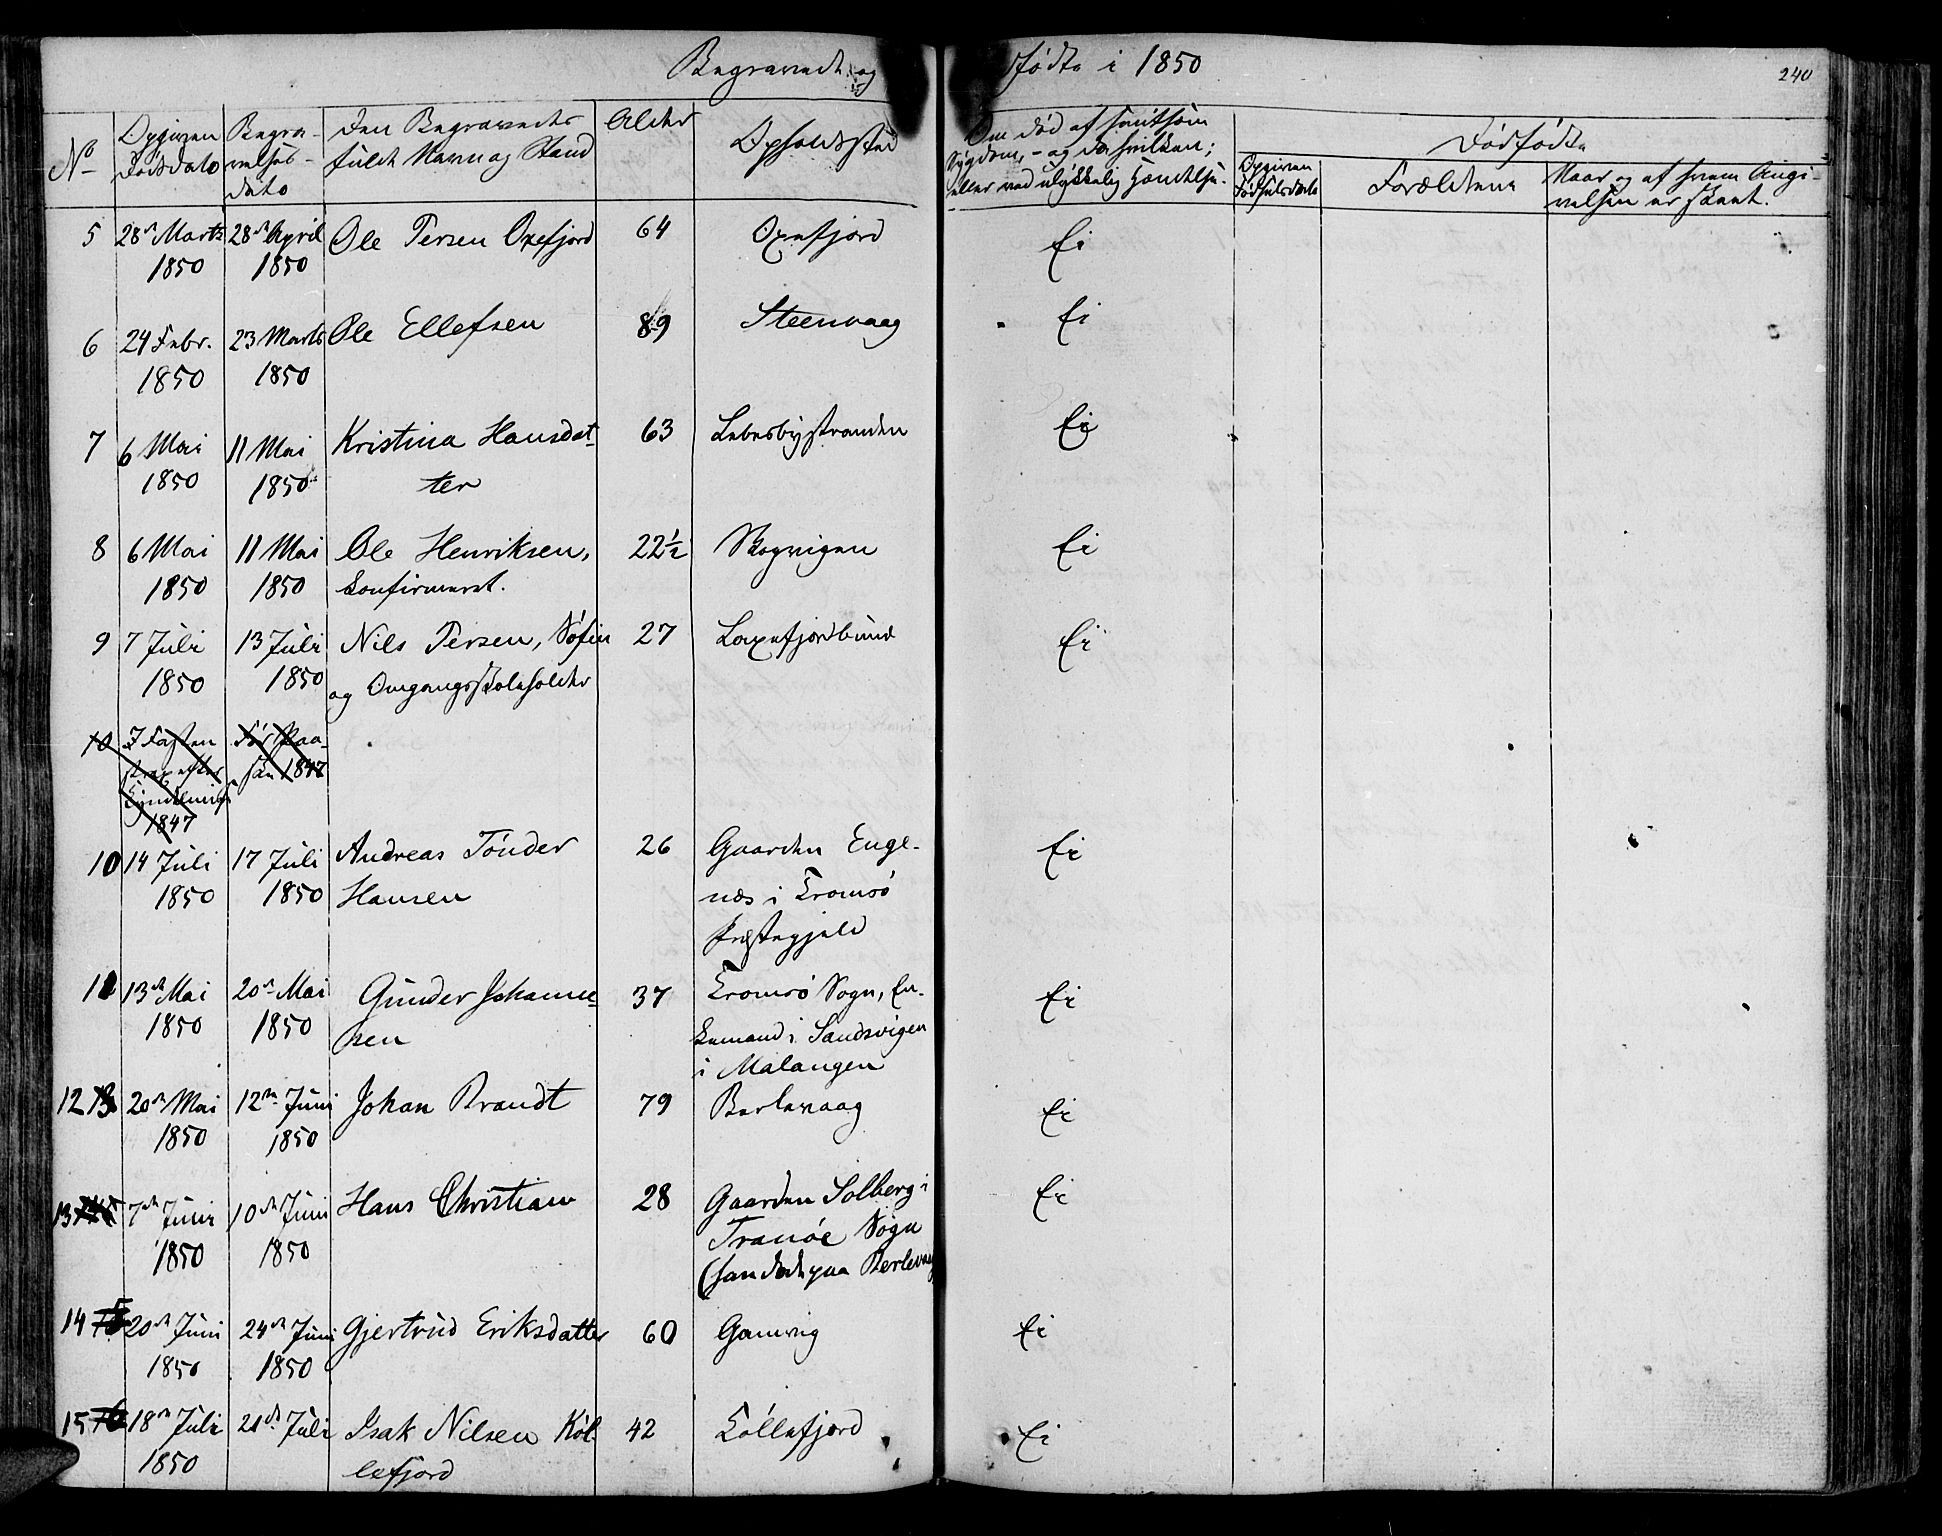 Begravede og dødfødte i 1850
240
No
Opgiven Dødsdato
Begravelses-dato
Den Begravedes fulde Navn og Stand
Alder
Opholdssted
Om død af smitsom Sygdom, - og da hvilken; eller ved ulykkelig Hændelse.
Dødfødte
Opgiven Fødselsdato
Forældrene
Naar og af hvem Angivelsen er skeet.
5 28de Marts 1850 28de April 1850 Ole Persen Oxefjord 64 Oxefjord Ei
6 24 Febr. 1850 23 Marts 1850 Ole Ellefsen 89 Steenvaag Ei
7 6 Mai 1850 11 Mai 1850 Kristina Hansdatter 63 Lebesbystranden Ei
8 6 Mai 1850 11 Mai 1850 Ole Henriksen, konfirmeret. 22½ Skogvigen Ei
9 7 Juli 1850 13 Juli 1850 Nils Persen, Søfin og Omgangsskoleholder 27 Laxefjordbund Ei
10 I Fasten strax efter Kyndelmis 1847 Før Paaske 1847
10 14 Juli 1850 17 Juli 1850 Andreas Tönder Hansen 26 Gaarden Engenæs i Tromsö Præstegjeld Ei
11 13de Mai 1850 20de Mai 1850 Gunder Johannesen 37 Tromsö Sogn, Enkemand i Sandsvigen i Malangen Ei
12 20de Mai 1850 12te Juni 1850 Johan Brandt 79 Berlevaag Ei
13 7de Juni 1850 10de Juni 1850 Hans Christian 28 Gaarden Solberg i Tranöe Sogn (han døde paa Berlevaag Ei
14 20de Juni 1850 24de Juni 1850 Gjertrud Eriksdatter 60 Gamvig Ei
15 18de Juli 1850 21de Juli Isak Nilsen Köllefjord 42 Köllefjord Ei